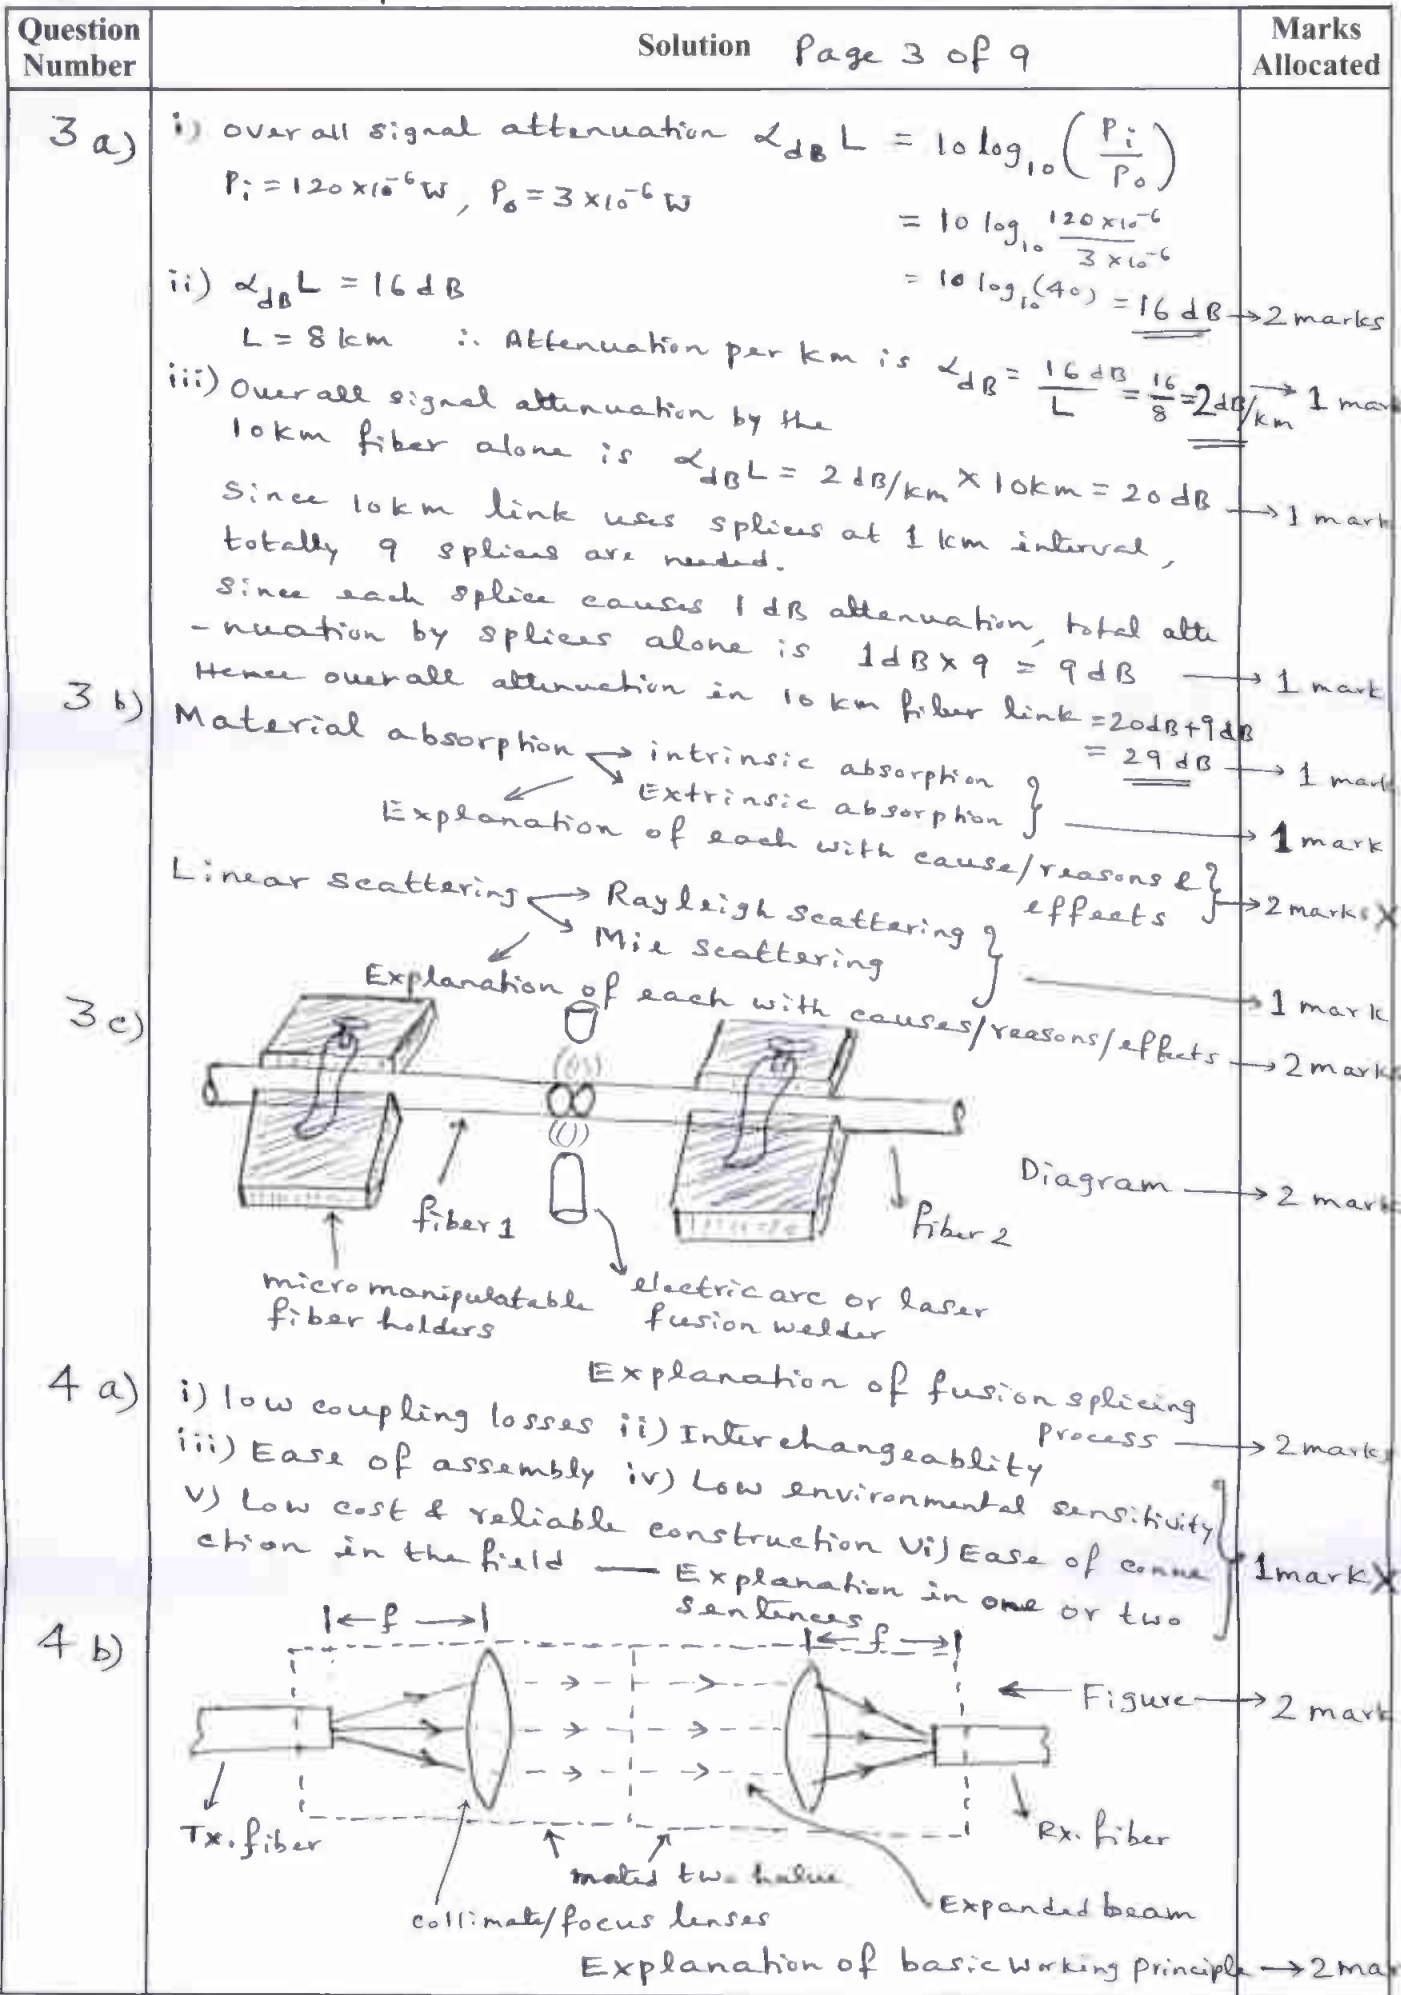 Question Number
Solution Page 3 of 9
Marks Allocated
3 a)
i) over all signal attenuation α_dB L = 10 log₁₀ (Pi/Po)
Pi = 120 x 10⁻⁶ W, Po = 3 x 10⁻⁶ W
= 10 log₁₀ 120 x 10⁻⁶ / 3 x 10⁻⁶
= 10 log₁₀ (40) = 16 dB → 2 marks
ii) α_dB L = 16 dB
L = 8 km ∴ Attenuation per km is α_dB = 16 dB / L = 16/8 = 2 dB/km → 1 mar
iii) Over all signal attenuation by the
10km fiber alone is α_dB L = 2 dB/km x 10km = 20 dB → 1 mark
Since 10km link uses splices at 1 km interval,
totally 9 splices are needed.
Since each splice causes 1 dB attenuation, total atte
-nuation by splices alone is 1dB x 9 = 9 dB → 1 mark
Hence over all attenuation in 10 km fiber link = 20dB + 9dB
= 29 dB → 1 mark
3 b)
Material absorption → intrinsic absorption
→ Extrinsic absorption → 1 mark
Explanation of each with cause/reasons &
effects → 2 marks X
Linear scattering → Rayleigh scattering
→ Mie scattering → 1 mark
Explanation of each with causes/reasons/effects → 2 marks
3 c)
fiber 1
fiber 2
Diagram → 2 mark
micromanipulatable
fiber holders
electric arc or laser
fusion welder
Explanation of fusion splicing
process → 2 marks
4 a)
i) low coupling losses ii) Interchangeablity
iii) Ease of assembly iv) Low environmental sensitivity
v) Low cost & reliable construction vi) Ease of conne
ction in the field — Explanation in one or two
sentences
1 mark X
4 b)
|← f →|
|← f →|
← Figure → 2 mark
Tx. fiber
Rx. fiber
mated two halve
collimate/focus lenses
Expanded beam
Explanation of basic working principle → 2 ma